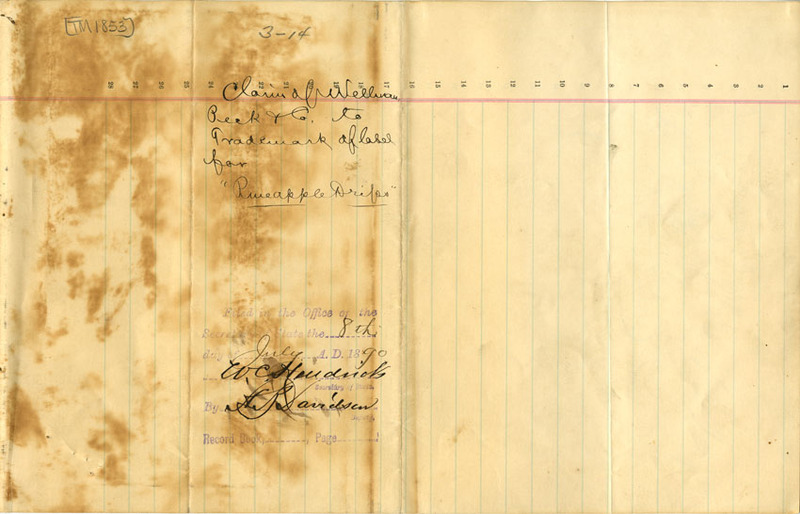 [TM 1853]
3-14
28 27 26 25 24 21 20 17 16 15 14 13 12 11 10 9 8 7 6 5 4 3 2 1
Claim of Wellman
Peck & Co. to
Trademark of label
for
"Pineapple Drips"
Filed in the Office of the
Secretary of State the 8th
day July A.D. 1890
W C Hendricks
Secretary of State.
By Davidson
Deputy.
Record Book, Page